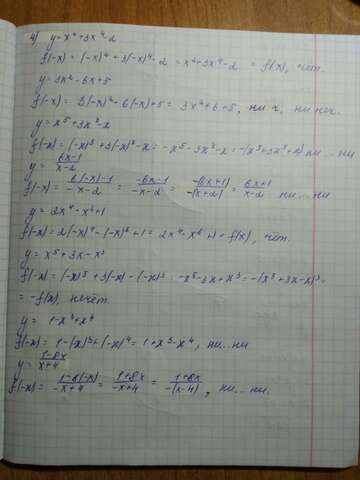 4) y=x⁴+3x⁴-2
f(-x)=(-x)⁴+3(-x)⁴-2=x⁴+3x⁴-2=f(x), чет.
y=3x²-6x+5
f(-x)=3(-x)²-6(-x)+5=3x²+6+5, ни ч, ни неч.
y=x⁵+3x³-x
f(-x)=(-x)⁵+3(-x)³-x=-x⁵-3x³-x=-(x⁵+3x³+x) ни...ни
y=6x-1/x-2
f(-x)=6(-x)-1/-x-2=-6x-1/-x-2=-(6x+1)/-(x+2)=6x+1/x-2 ни...ни
y=2x⁴-x⁶+1
f(-x)=2(-x)⁴-(-x)⁶+1=2x⁴-x⁶+1=f(x), чет.
y=x⁵+3x-x³
f(-x)=(-x)⁵+3(-x)-(-x)³=-x⁵-3x+x³=-(x⁵+3x-x)³=
=-f(x), нечет.
y=1-x³+x⁴
f(-x)=1-(-x)³+(-x)⁴=1+x³-x⁴, ни...ни
y=1-8x/x+4
f(-x)=1-8(-x)/-x+4=1+8x/-x+4=1+8x/-(x-4), ни...ни.